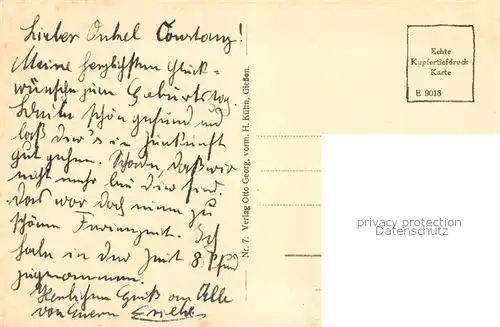 Lieber Onkel Constanz!
Meine herzlichsten Glück-
wünsche zum Geburtstag.
Bleibe schön gesund und
laß dir's in Zukunft
gut gehen. Schade, daß wir
nicht mehr bei dir sind.
Das war doch eine zu
schöne Ferienzeit. Ich
habe in der Zeit 8 Pfund
zugenommen.
Herzlichen Gruß an Alle
von Eurem
Nr. 7. Verlag Otto Georg, vorm. H. Kühn, Gießen.
Echte
Kupfertiefdruck
Karte
E 9018
privacy protection